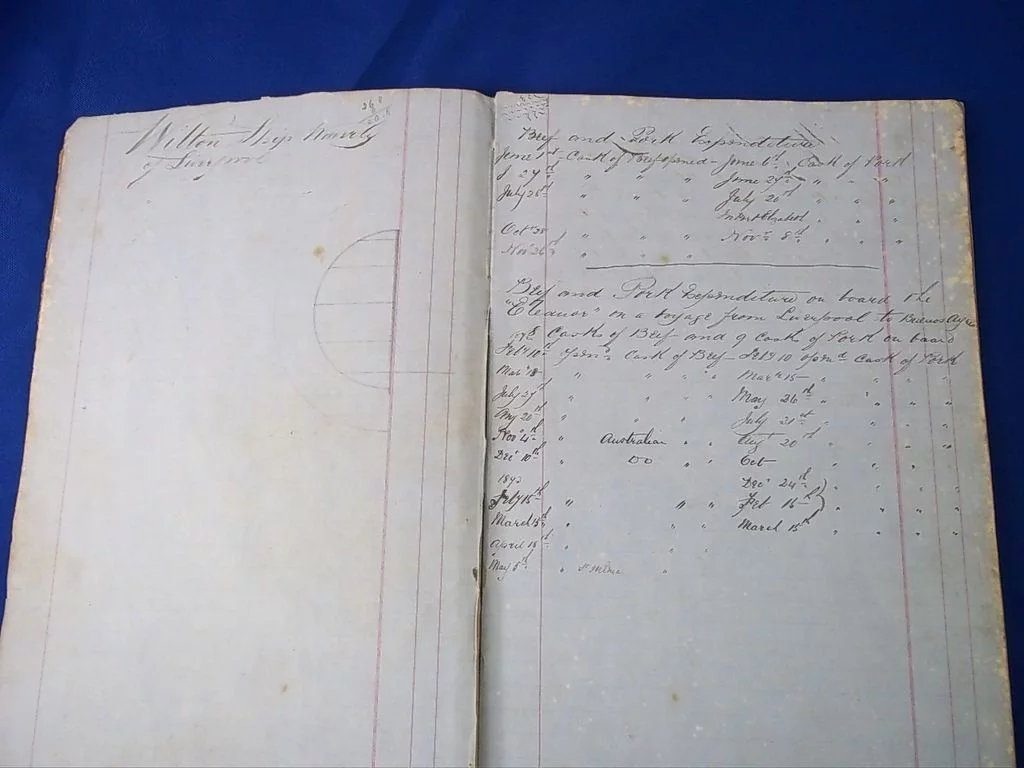 Wilton Ship
of Liverpool
Beef and Pork Expenditure
June 1st Cask of Beef opened - June 6th Cask of Pork
J 24th " " " June 24th " " "
July 26th " " " July 20th " " "
In Port Elizabeth " " "
Oct 30 " " " Nov 8th " " "
Nov 26th " " "
Beef and Pork Expenditure on board the
"Eleanor" on a Voyage from Liverpool to Buenos Ayres
Cask of Beef and 9 Cask of Pork on board
Feby 10th open'd Cask of Beef - Feby 10 open'd Cask of Pork
Mar 18 " " " Mar 15 " " "
July 27th " " " May 26th " " "
Aug 20th " " " July 21st " " "
Nov 4th " Australian " " Aug 20th " " "
Dec 10th " DO " " Oct " " "
1872 Dec 24th " " "
Feby 15th " " " Feb 15th " " "
March 15th " " " March 15th " " "
April 15th " " "
May 5th " "